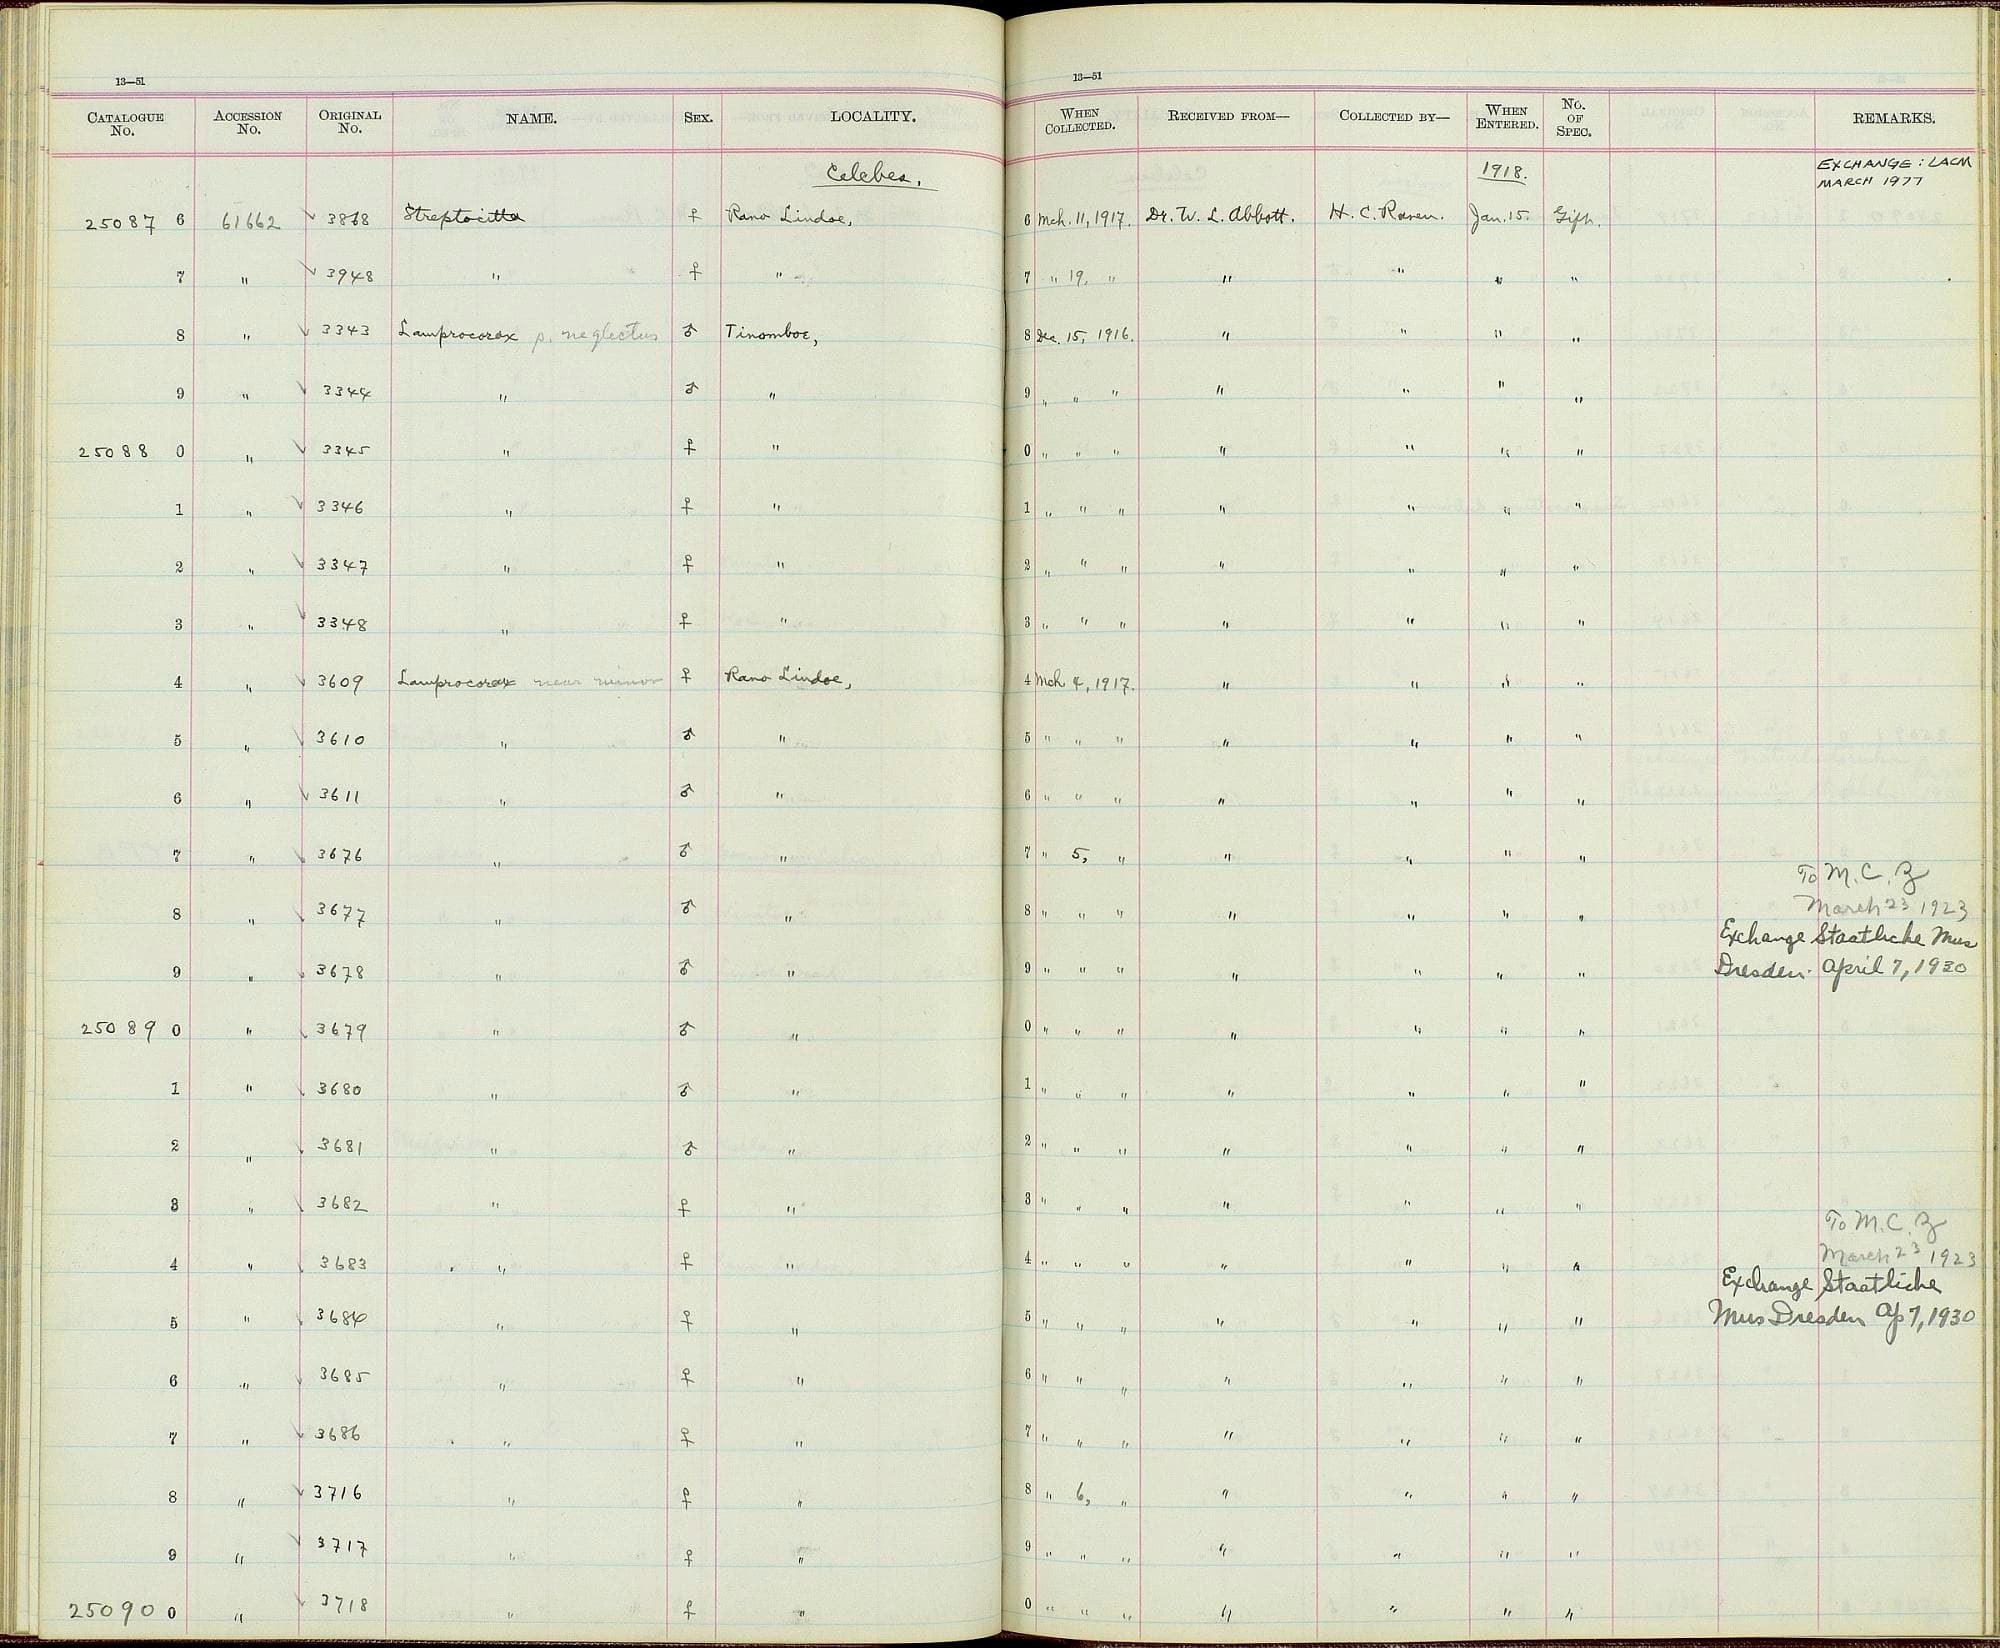 13—51
CATALOGUE No. ACCESSION No. ORIGINAL No. NAME. SEX. LOCALITY.
Celebes.
25087 6 61662 ✓ 3868 Streptocitta ♀ Rano Lindoe,
7 " ✓ 3948 " ♀ "
8 " ✓ 3343 Lamprocorax p. neglectus ♂ Tinomboe,
9 " ✓ 3344 " ♂ "
25088 0 " ✓ 3345 " ♀ "
1 " ✓ 3346 " ♀ "
2 " ✓ 3347 " ♀ "
3 " ✓ 3348 " ♀ "
4 " ✓ 3609 Lamprocorax near minor ♀ Rano Lindoe,
5 " ✓ 3610 " ♂ "
6 " ✓ 3611 " ♂ "
7 " ✓ 3676 " ♂ "
8 " ✓ 3677 " ♂ "
9 " ✓ 3678 " ♂ "
25089 0 " ✓ 3679 " ♂ "
1 " ✓ 3680 " ♂ "
2 " ✓ 3681 " ♂ "
3 " ✓ 3682 " ♀ "
4 " ✓ 3683 " ♀ "
5 " ✓ 3684 " ♀ "
6 " ✓ 3685 " ♀ "
7 " ✓ 3686 " ♀ "
8 " ✓ 3716 " ♀ "
9 " ✓ 3717 " ♀ "
25090 0 " ✓ 3718 " ♀ "
13—51
WHEN COLLECTED. RECEIVED FROM— COLLECTED BY— WHEN ENTERED. No. OF SPEC. REMARKS.
1918. EXCHANGE: LACM
MARCH 1977
6 Mch. 11, 1917. Dr. W. L. Abbott. H. C. Raven. Jan. 15. Gift.
7 " 19, " " " " "
8 Dec. 15, 1916. " " " "
9 " " " " " " "
0 " " " " " " "
1 " " " " " " "
2 " " " " " " "
3 " " " " " " "
4 Mch 4, 1917. " " " "
5 " " " " " " "
6 " " " " " " "
7 " 5, " " " " "
To M. C. Z
8 " " " " " " " March 23 1923
Exchange Staatliche Mus
9 " " " " " " " Dresden. April 7, 1930
0 " " " " " " "
1 " " " " " " "
2 " " " " " " "
3 " " " " " " "
To M. C. Z
4 " " " " " " " March 23 1923
Exchange Staatliche
5 " " " " " " " Mus Dresden Ap 7, 1930
6 " " " " " " "
7 " " " " " " "
8 " 6, " " " " "
9 " " " " " " "
0 " " " " " " "